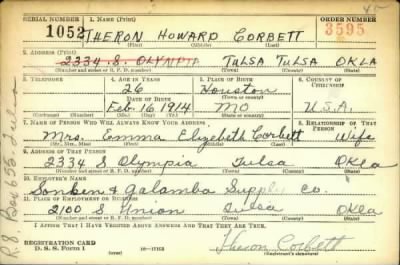 SERIAL NUMBER 1. NAME (Print) ORDER NUMBER
1052 THERON HOWARD CORBETT 3595
(First) (Middle) (Last)
2. ADDRESS (Print)
2334 S. OLYMPIA TULSA TULSA OKLA
(Number and street or R. F. D. number) (Town) (County) (State)
3. TELEPHONE 4. AGE IN YEARS 5. PLACE OF BIRTH 6. COUNTRY OF CITIZENSHIP
26 Houston
DATE OF BIRTH (Town or county)
Feb. 16, 1914 MO U.S.A.
(Exchange) (Number) (Mo.) (Day) (Yr.) (State or country)
7. NAME OF PERSON WHO WILL ALWAYS KNOW YOUR ADDRESS 8. RELATIONSHIP OF THAT PERSON
Mrs. Emma Elizebeth Corbett Wife
(Mr., Mrs., Miss) (First) (Middle) (Last)
9. ADDRESS OF THAT PERSON
2334 S Olympia Tulsa Okla
(Number and street or R. F. D. number) (Town) (County) (State)
10. EMPLOYER'S NAME
Sonken & Galamba Supply Co.
11. PLACE OF EMPLOYMENT OR BUSINESS
2100 S Union Tulsa Okla
(Number and street or R. F. D. number) (Town) (County) (State)
I AFFIRM THAT I HAVE VERIFIED ABOVE ANSWERS AND THAT THEY ARE TRUE.
REGISTRATION CARD
D. S. S. Form 1 16—17105 Theron Corbett
(Registrant's signature)
R.8. Box 653